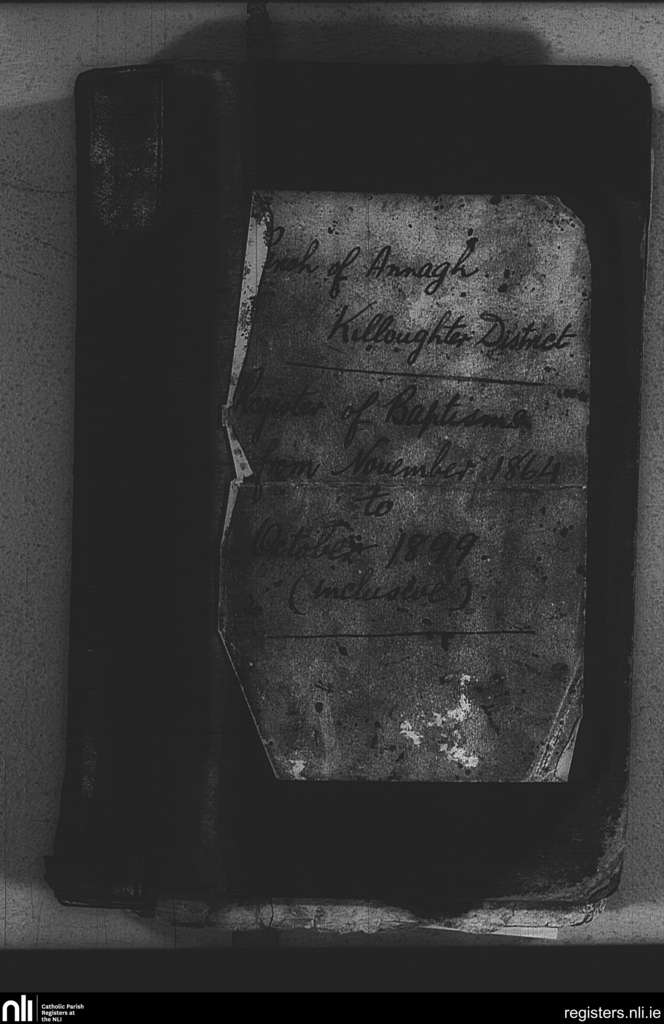 of Annagh
Killoughter District
Register of Baptisms
from November 1864
to
October 1899
(inclusive)
nli
Catholic Parish
Registers at
the NLI
registers.nli.ie